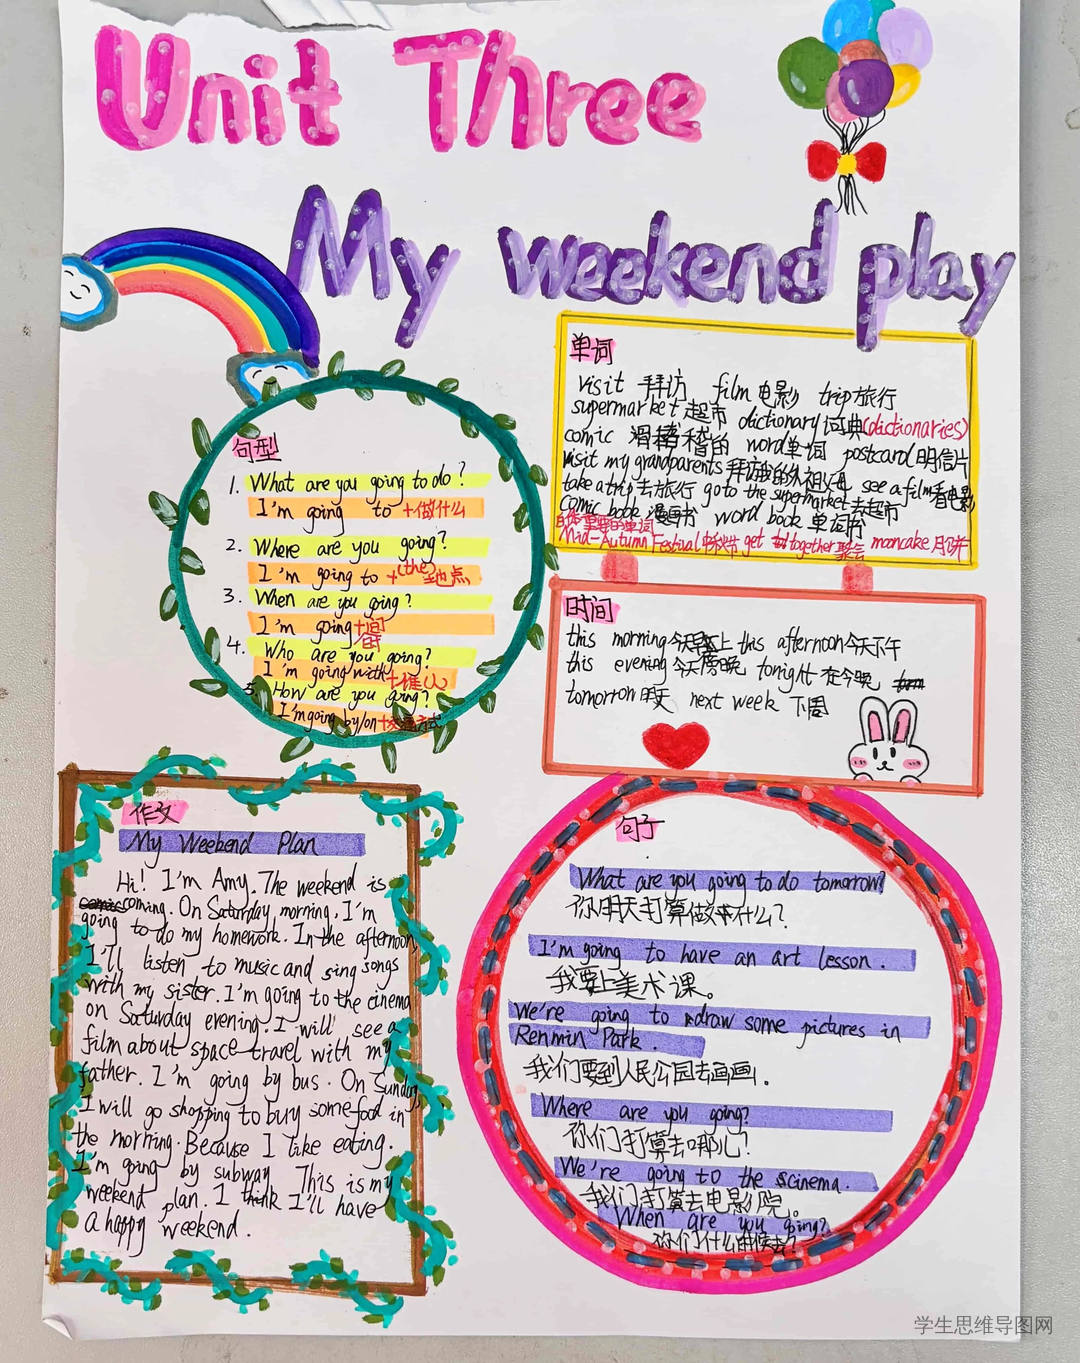 Unit Three
My weekend play
句型
1. What are you going to do?
I'm going to +做什么
2. Where are you going?
I'm going to +(the)地点
3. When are you going?
I'm going +时间
4. Who are you going?
I'm going with +谁(人)
5. How are you going?
I'm going by/on +交通方式
单词
visit 拜访 film 电影 trip 旅行
supermarket 超市 dictionary 词典(dictionaries)
comic 滑稽的 word 单词 postcard 明信片
visit my grandparents 拜访我的外祖父母 see a film 看电影
take a trip 去旅行 go to the supermarket 去超市
comic book 漫画书 word book 单词书
重要的单词
Mid-Autumn Festival 中秋节 get together 聚会 mooncake 月饼
时间
this morning 今天早上 this afternoon 今天下午
this evening 今天傍晚 tonight 在今晚
tomorrow 明天 next week 下周
作文
My Weekend Plan
Hi! I'm Amy. The weekend is
coming. On Saturday morning, I'm
going to do my homework. In the afternoon,
I'll listen to music and sing songs
with my sister. I'm going to the cinema
on Saturday evening. I will see a
film about space travel with my
father. I'm going by bus. On Sunday,
I will go shopping to buy some food in
the morning. Because I like eating.
I'm going by subway. This is my
weekend plan. I think I'll have
a happy weekend.
句子
What are you going to do tomorrow?
你明天打算做什么?
I'm going to have an art lesson.
我要上美术课。
We're going to draw some pictures in
Renmin Park.
我们要到人民公园去画画。
Where are you going?
你们打算去哪儿?
We're going to the cinema.
我们打算去电影院。
When are you going?
你们什么时候去?
学生思维导图网